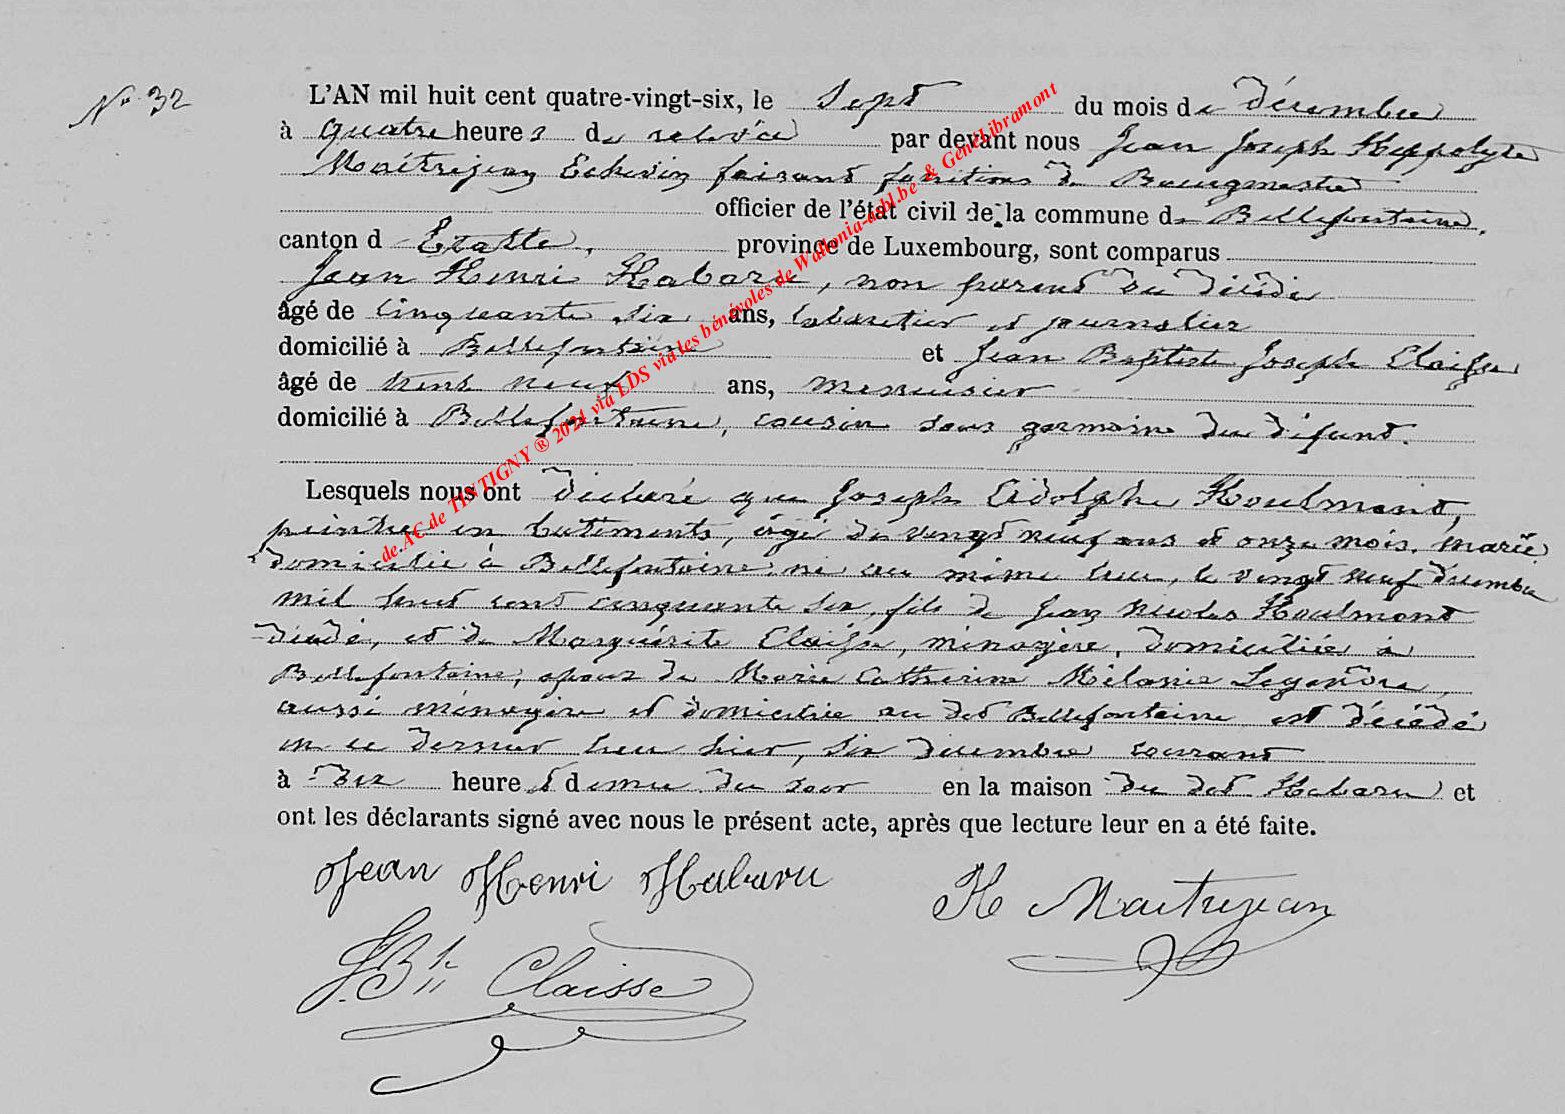 N° 32
L'AN mil huit cent quatre-vingt-six, le Sept du mois de décembre
à quatre heures de relevée par devant nous Jean Joseph Hippolyte
Maitrejean Echevin faisant fonctions de Bourgmestre
officier de l'état civil de la commune de Bellefontaine,
canton d Etalle, province de Luxembourg, sont comparus
Jean Henri Habaru, non parent du décédé
âgé de cinquante six ans, cabaretier et journalier
domicilié à Bellefontaine et Jean Baptiste Joseph Claisse
âgé de trente neuf ans, menuisier
domicilié à Bellefontaine, cousin sous germain du défunt.
Lesquels nous ont déclaré que Joseph Adolphe Houlmont,
peintre en batiments, âgé de vingt neuf ans et onze mois, marié
domicilié à Bellefontaine, né au même lieu, le vingt neuf décembre
mil huit cent cinquante six, fils de Jean Nicolas Houlmont
décédé, et de Marguérite Claisse, ménagère, domiciliée à
Bellefontaine, époux de Marie Catherine Mélanie Legendre,
aussi ménagère et domiciliée au dit Bellefontaine est décédé
en ce dernier lieu hier, six décembre courant
à dix heure et demie du soir en la maison du dit Habaru et
ont les déclarants signé avec nous le présent acte, après que lecture leur en a été faite.
Jean Henri Habaru
H Maitrejean
J. Bte Claisse
de AC de TINTIGNY ® 2021 via LDS via les bénévoles de Wallonia-asbl.be & GenéLibramont